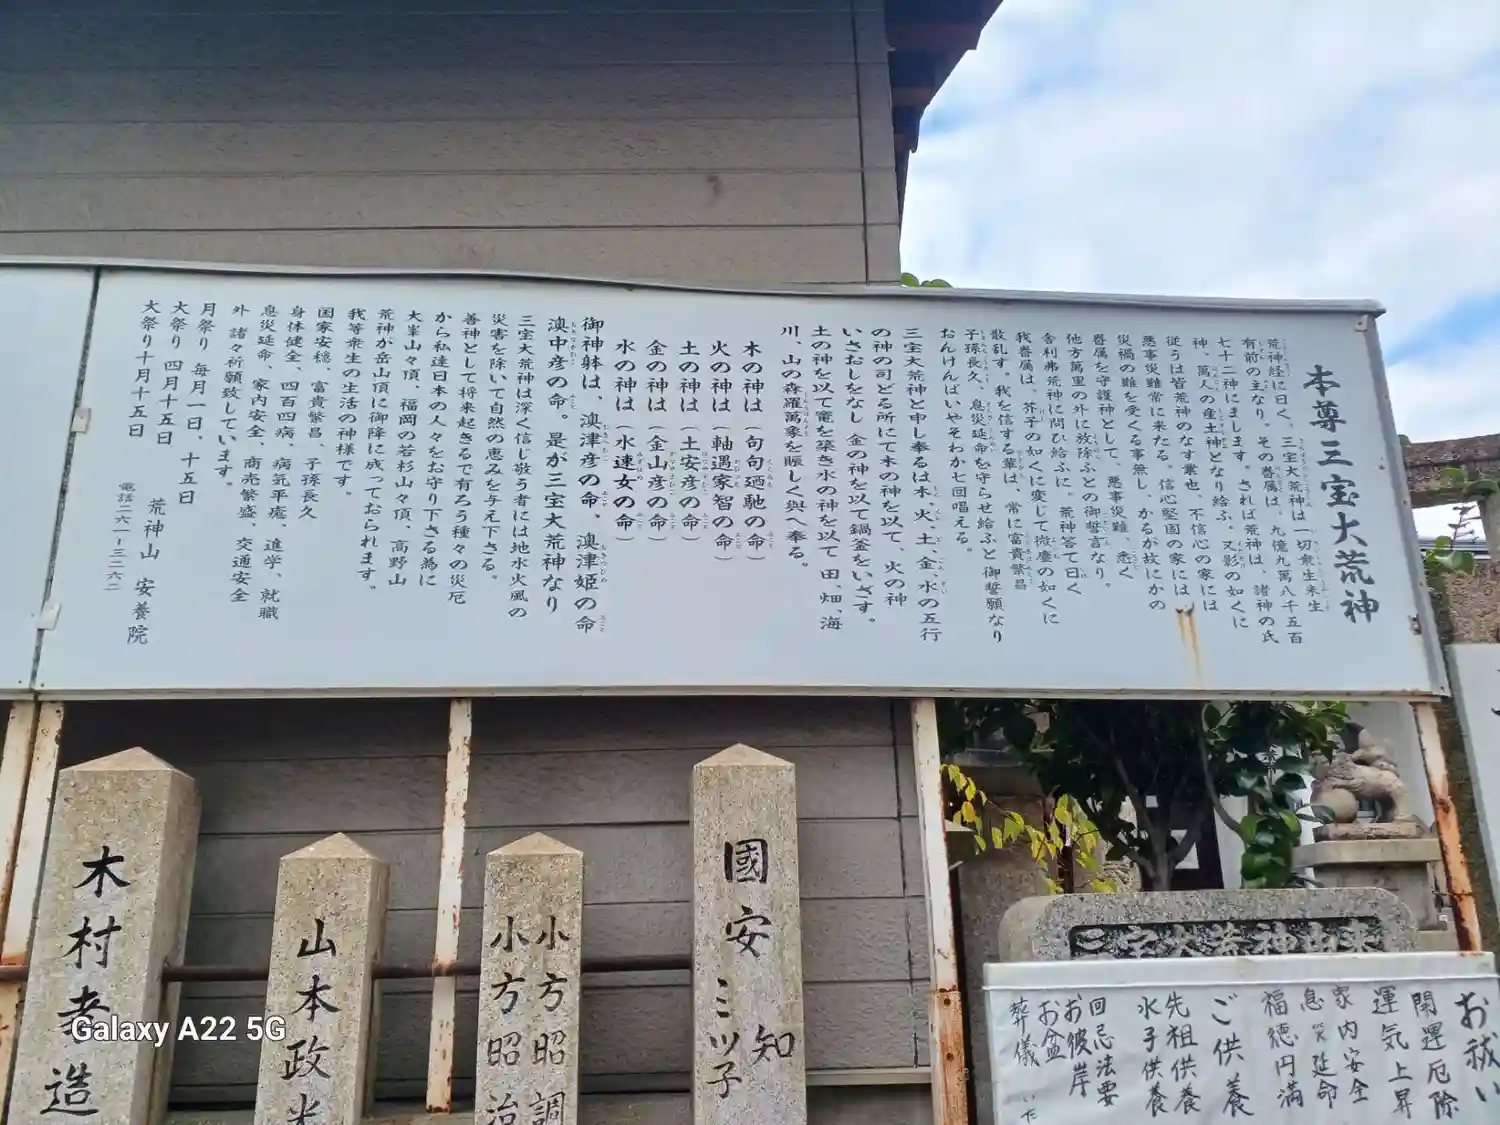 本尊三宝大荒神
荒神経に曰く、三宝大荒神は一切衆生未生
有前の主なり。その眷属は、九億九萬八千五百
七十二神にまします。されば荒神は、諸神の氏
神、萬人の産土神となり給ふ、又影の如くに
従うは皆荒神のなす業也、不信心の家には
悪事災難常に来たる。信心堅固の家には
災禍の難を受くる事無し、かるが故にかの
眷属を守護神として、悪事災難、悉く
他方萬里の外に放除ふとの御誓言なり。
舎利弗荒神に問ひ給ふに。荒神答て曰く
我眷属は、芥子の如くに変じて微塵の如くに
散乱す。我を信する輩は、常に富貴繁昌
子孫長久、息災延命を守らせ給ふと御誓願なり
おんけんばいやそわか七回唱える。
三宝大荒神と申し奉るは木、火、土、金、水の五行
の神の司どる所にて木の神を以て、火の神
いさおしをなし金の神を以て鍋釜をいざす。
土の神を以て竃を築き水の神を以て田、畑、海
川、山の森羅萬象を賑しく與へ奉る。
木の神は(句句廼馳の命)
火の神は(軸遇家智の命)
土の神は(土安彦の命)
金の神は(金山彦の命)
水の神は(水速女の命)
御神躰は、澳津彦の命、澳津姫の命
澳中彦の命。是が三宝大荒神なり
三宝大荒神は深く信じ敬う者には地水火風の
災害を除いて自然の恵みを与え下さる。
善神として将来起きるで有ろう種々の災厄
から私達日本の人々をお守り下さる為に
大峯山々頂、福岡の若杉山々頂、高野山
荒神が岳山頂に御降に成っておられます。
我等衆生の生活の神様です。
国家安穏、富貴繁昌、子孫長久
身体健全、四百四病、病気平癒、進学、就職
息災延命、家内安全、商売繁盛、交通安全
外 諸々祈願致しています。
月祭り 毎月一日、十五日
大祭り 四月十五日
大祭り十月十五日
荒神山 安養院
電話二六一ー三二六二
木村孝造
山本政光
小方昭調
小方昭治
國安
知
ミツ子
末山神荒大宝
お祓い
開運厄除
運気上昇
家内安全
息災延命
福徳円満
ご供養
先祖供養
水子供養
回忌法要
お彼岸
お盆
葬儀
いた
Galaxy A22 5G